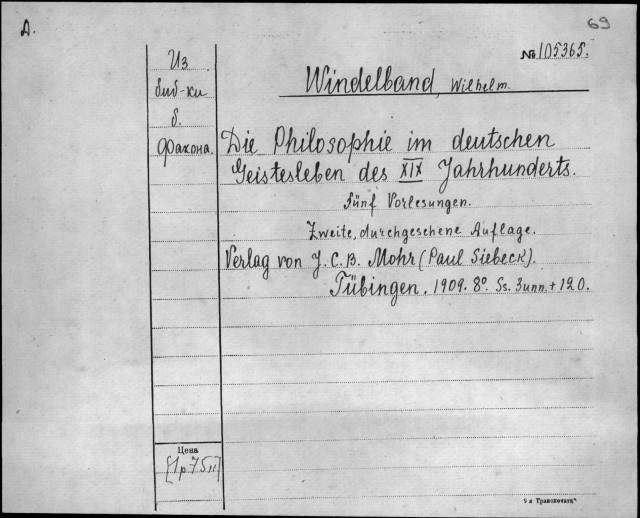 A.
69
№ 105365.
Из
биб-ки
б.
Фахона.
Windelband, Wilhelm.
Die Philosophie im deutschen
Geistesleben des XIX Jahrhunderts.
Fünf Vorlesungen.
Zweite, durchgesehene Auflage.
Verlag von J. C. B. Mohr (Paul Siebeck).
Tübingen. 1909. 8º. Ss. 3unn. + 120.
Цена